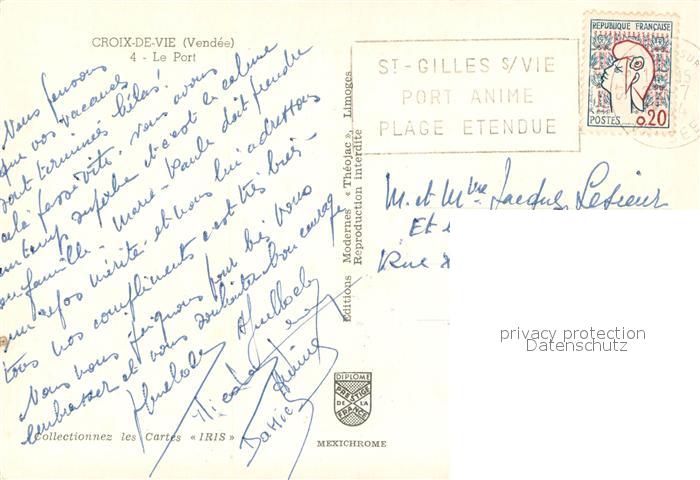 CROIX-DE-VIE (Vendée)
4 - Le Port
Nous pensons
que vos vacances
sont terminées hélas!
cela passe vite. nous avons
un temps superbe et c'est le calme
en famille. Marie-Paule doit prendre
un repos mérité et nous lui adressons
tous nos compliments c'est très bien.
Nous nous joignons pour bis vous
embrasser et vous souhaiter bon courage
Collectionnez les Cartes « IRIS »
MEXICHROME
DIPLOME
PRESTIGE
DE LA
FRANCE
Editions Modernes « Théojac », Limoges
Reproduction interdite
ST-GILLES S/VIE
PORT ANIME
PLAGE ETENDUE
REPUBLIQUE FRANÇAISE
POSTES 0,20
M. et Mme Jacques Lesieur
Et
Rue
privacy protection
Datenschutz